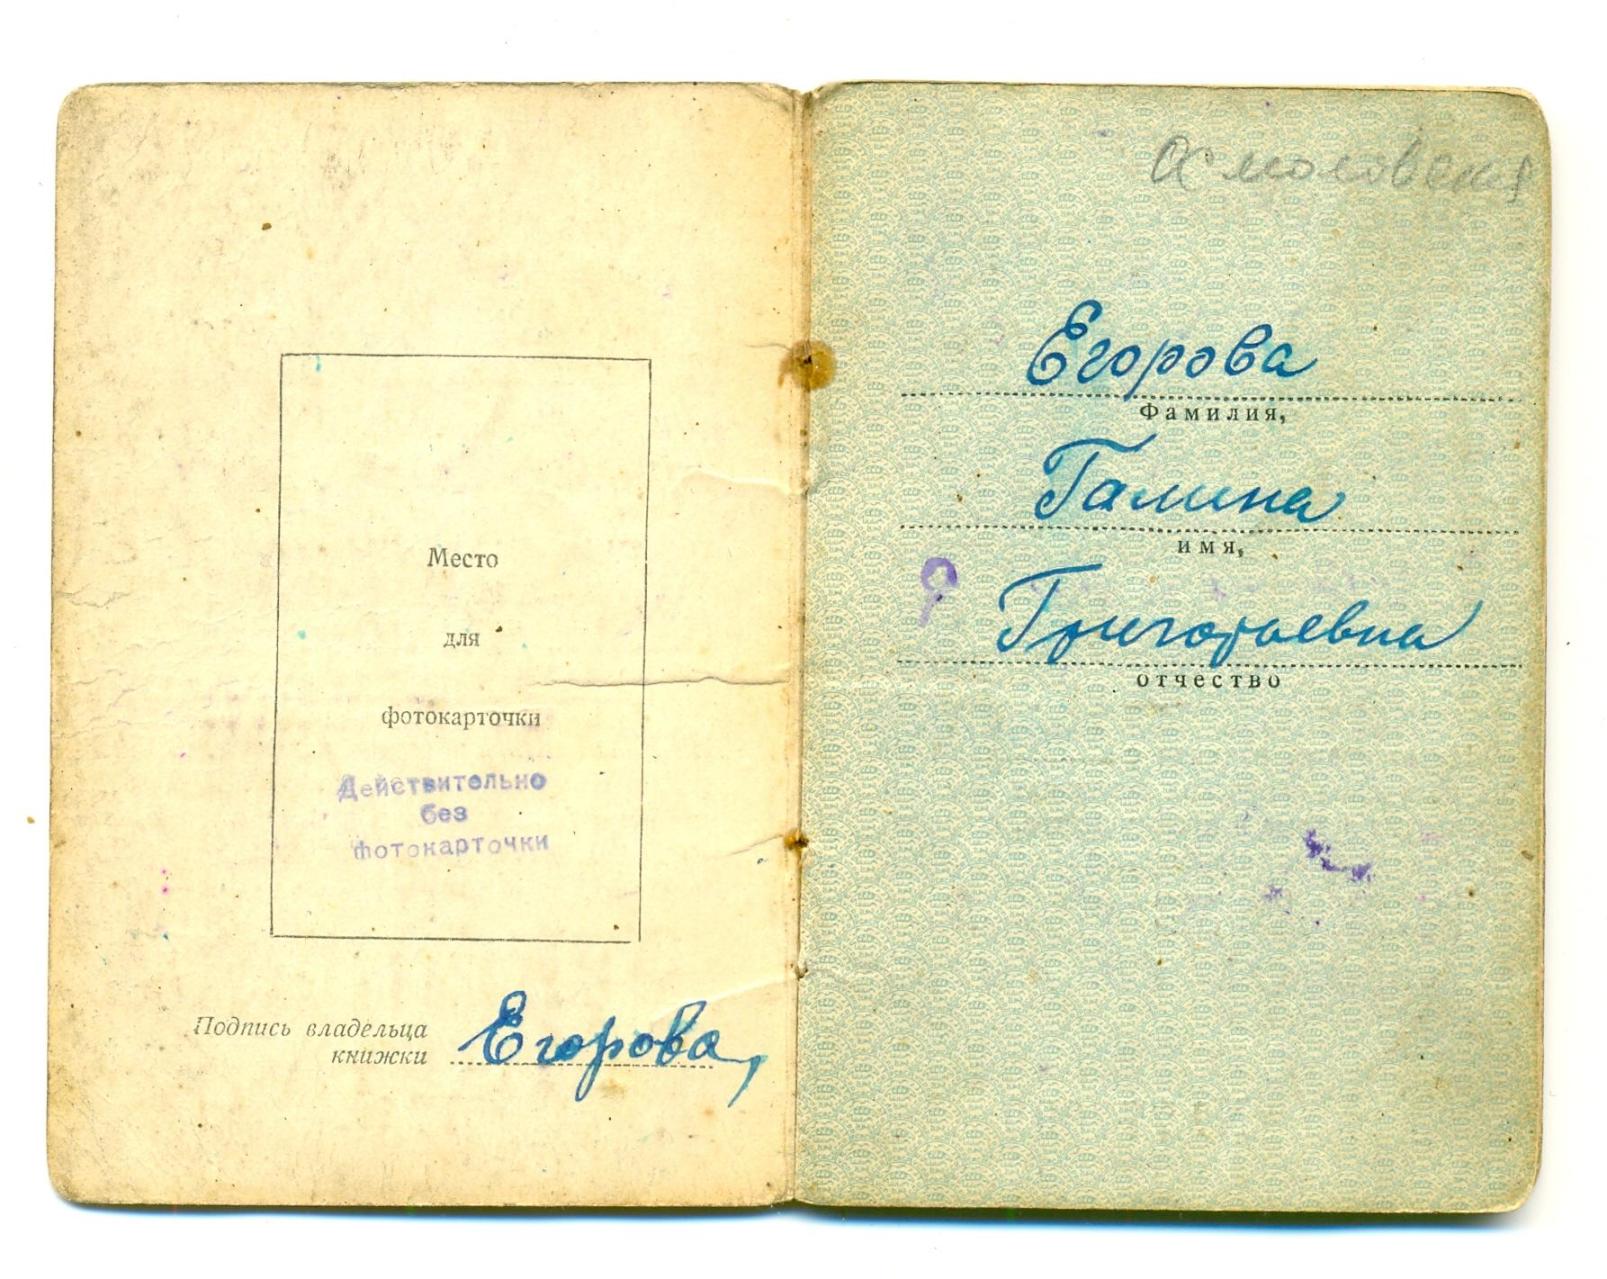 Место
для
фотокарточки
Действительно
без
фотокарточки
Подпись владельца
книжки Егорова
Осмоловская
Егорова
Фамилия,
Галина
имя,
Григорьевна
отчество